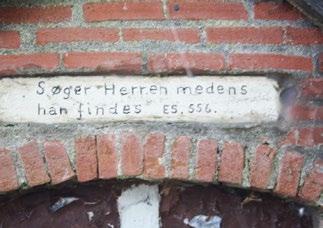 Søger Herren medens
han findes ES, 55 6.